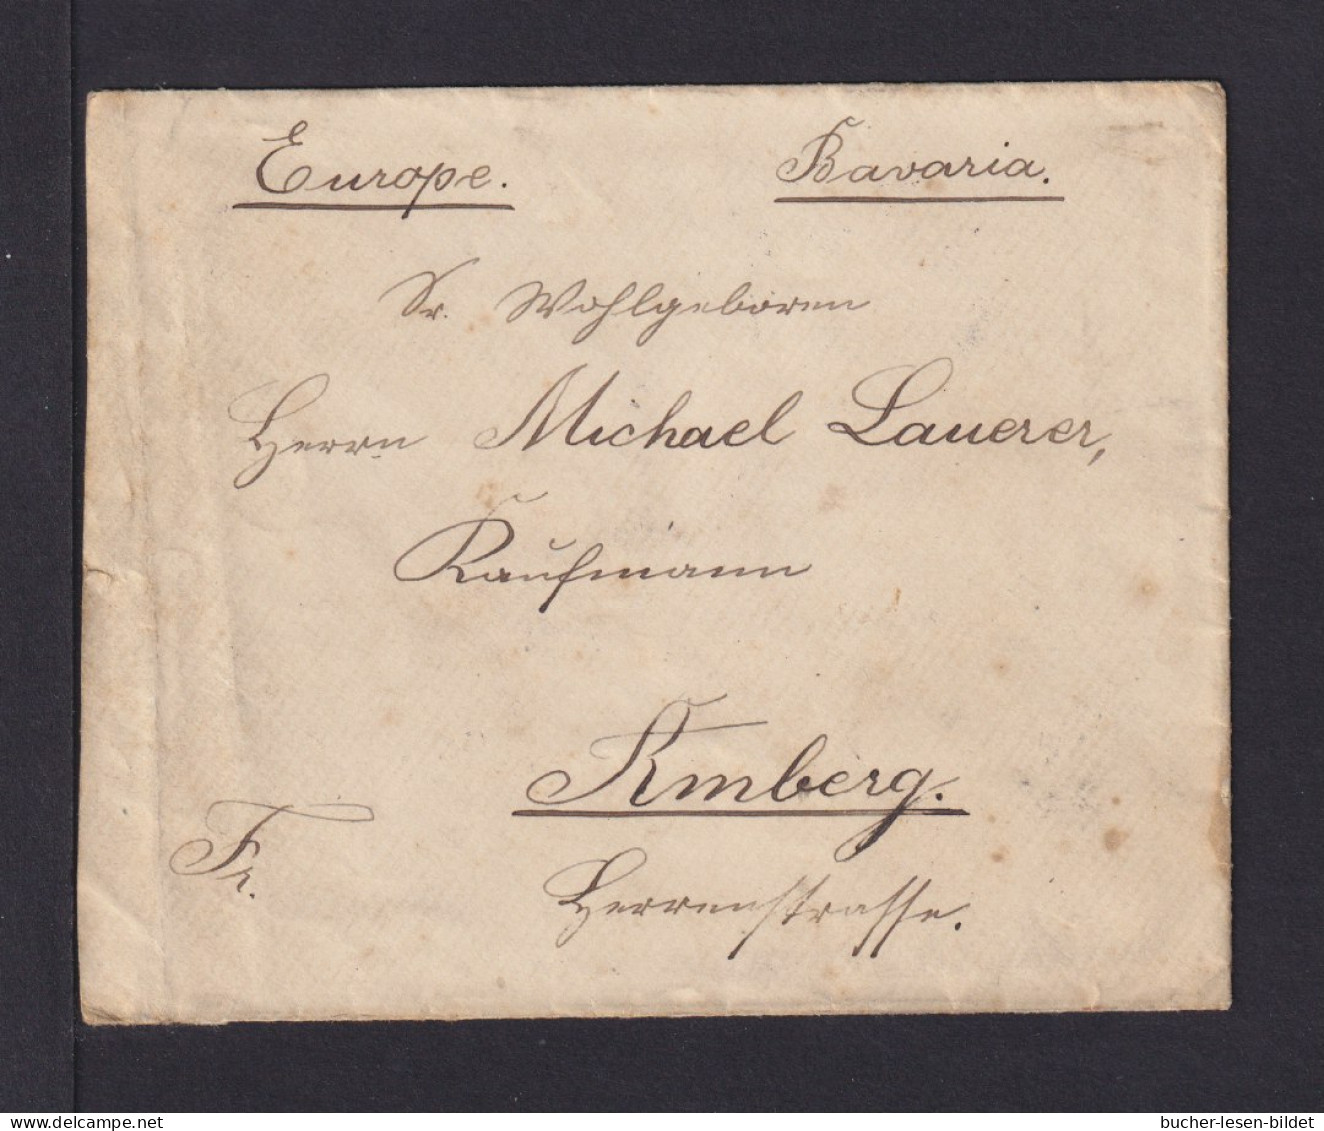 Europe. Bavaria.
Sr. Wohlgeboren
Herrn Michael Lauerer,
Kaufmann
Amberg.
Fr.
Herrenstrasse.
www.delcampe.net
bucher-lesen-bildet